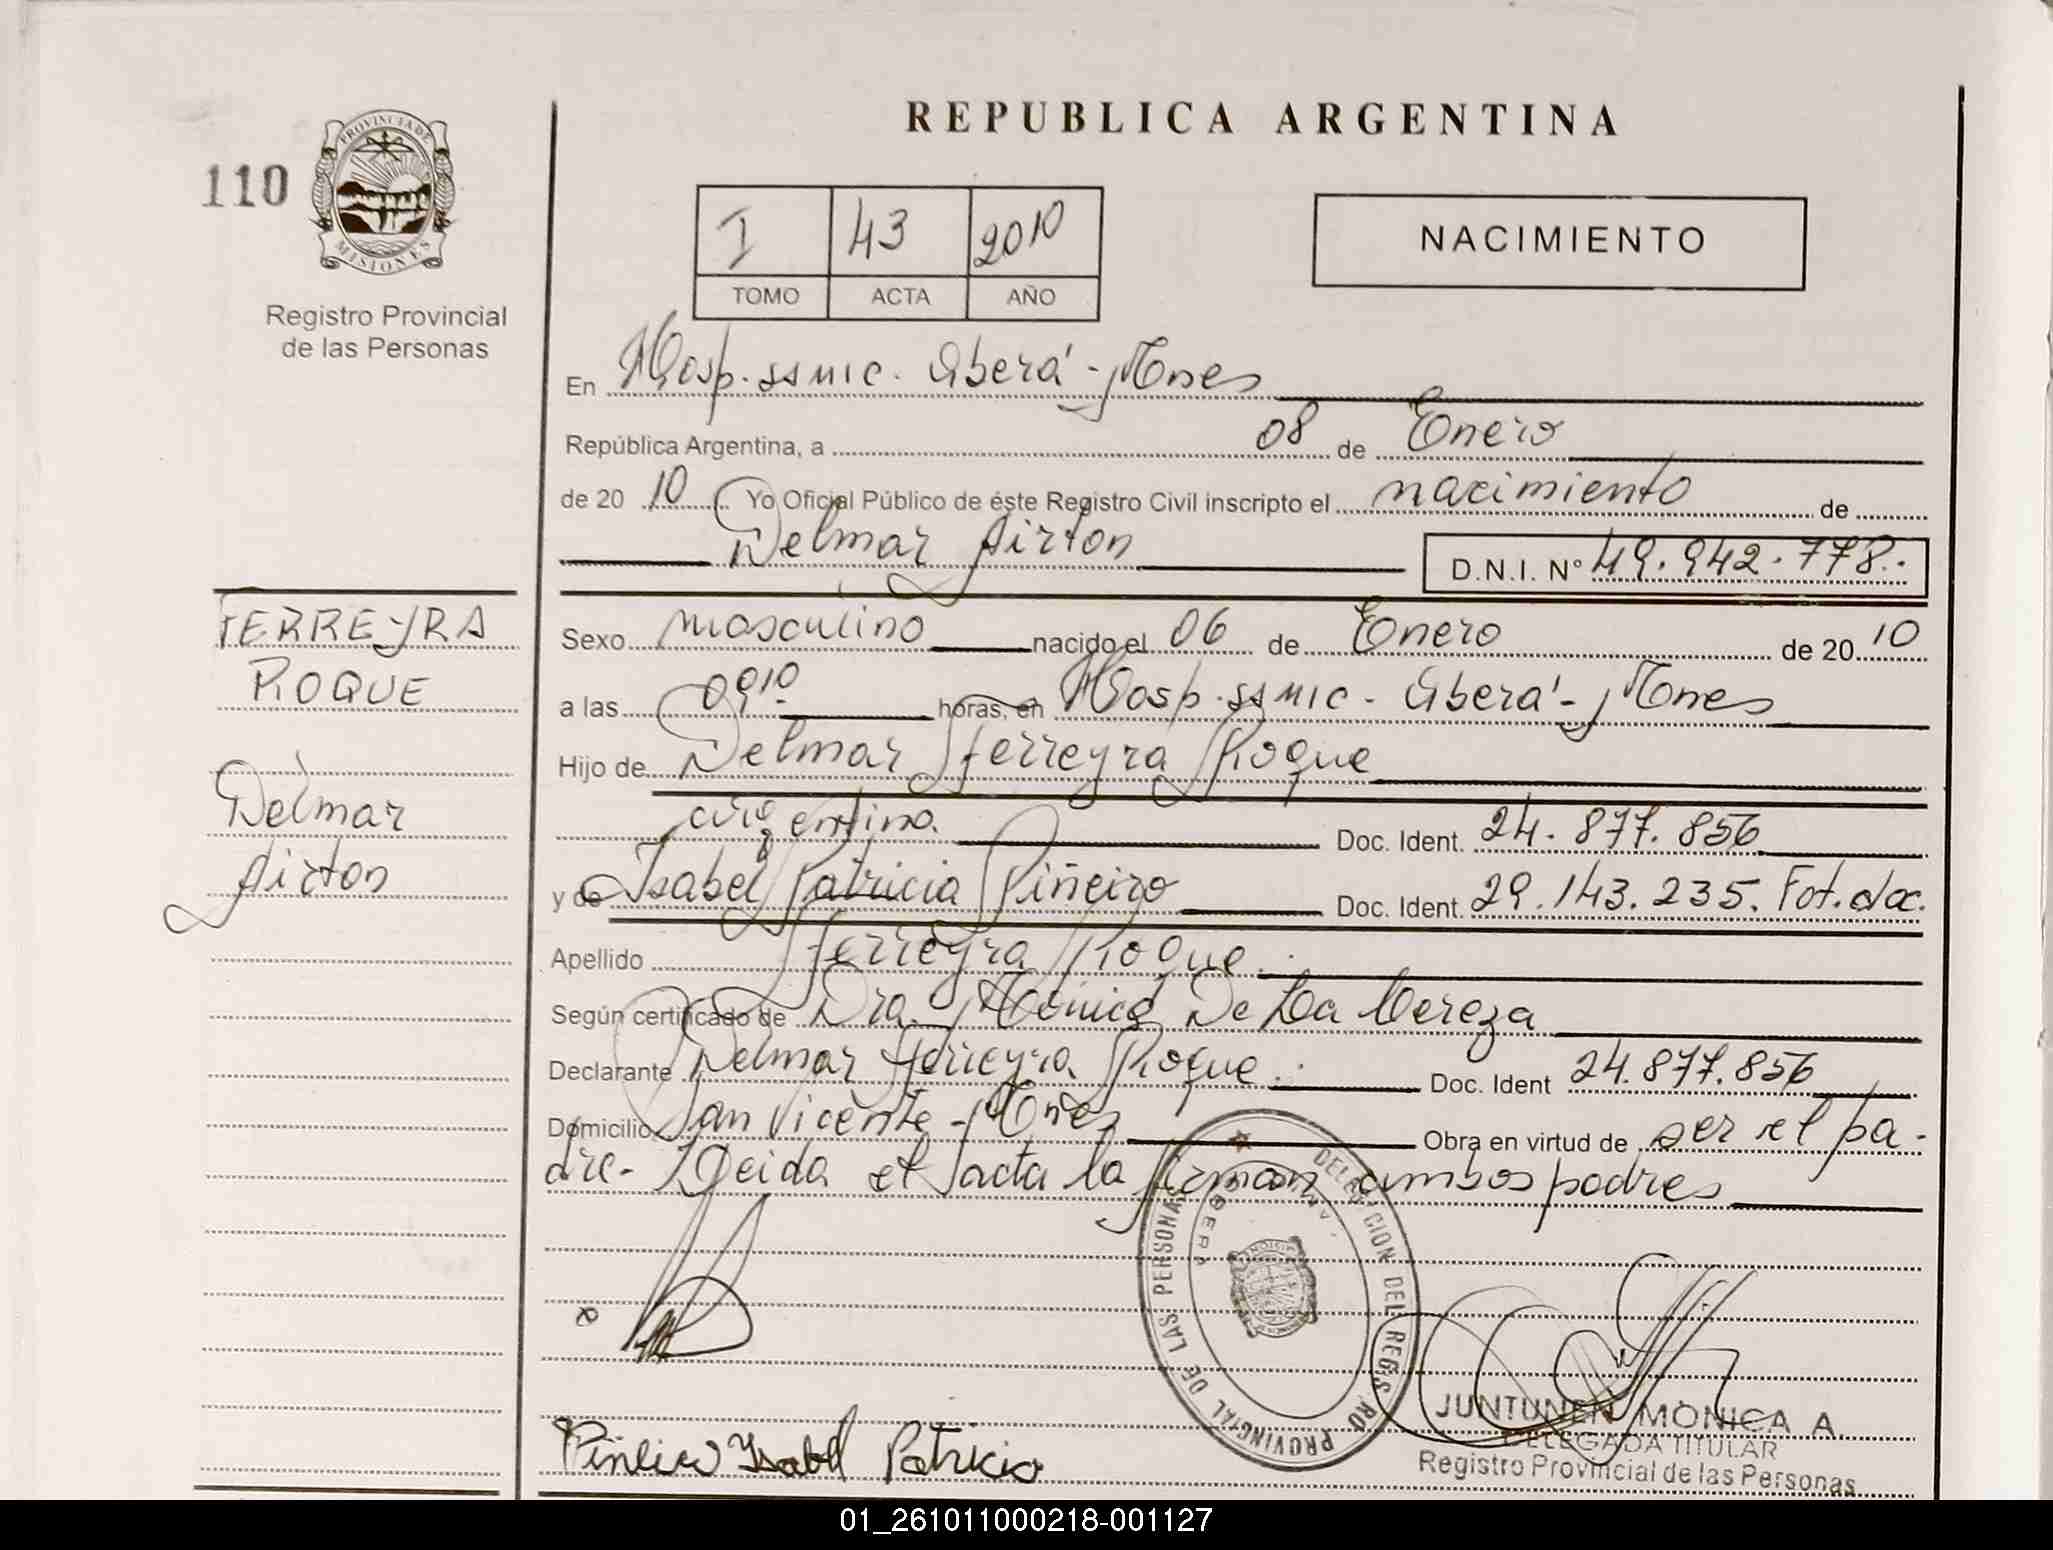 REPUBLICA ARGENTINA
110
PROVINCIA DE
MISIONES
Registro Provincial
de las Personas
I 43 2010
TOMO ACTA AÑO
NACIMIENTO
En Hosp. ssmic. Oberá - Mnes
República Argentina, a 08 de Enero
de 20 10 Yo Oficial Público de éste Registro Civil inscripto el nacimiento de
Delmar Airton D.N.I. N° 49.942.778.-
FERREYRA
ROQUE
Delmar
Airton
Sexo masculino nacido el 06 de Enero de 20 10
a las 09 10 horas, en Hosp. ssmic - Oberá - Mnes
Hijo de Delmar Ferreyra Roque
argentino. Doc. Ident. 24.877.856
y de Isabel Patricia Piñeiro Doc. Ident. 29.143.235. Fot. doc.
Apellido Ferreyra Roque.
Según certificado de Dra. Mónica De La
Declarante Delmar Ferreyra Roque. Doc. Ident 24.877.856
Domicilio San Vicente - Mnes Obra en virtud de ser el pa-
dre - Leida el acta la firman ambos padres
DELEGACION DEL REGISTRO PROVINCIAL DE LAS PERSONAS
OBERA
Piñeiro Isabel Patricia
JUNTUNEN MONICA A.
DELEGADA TITULAR
Registro Provincial de las Personas
01_261011000218-001127